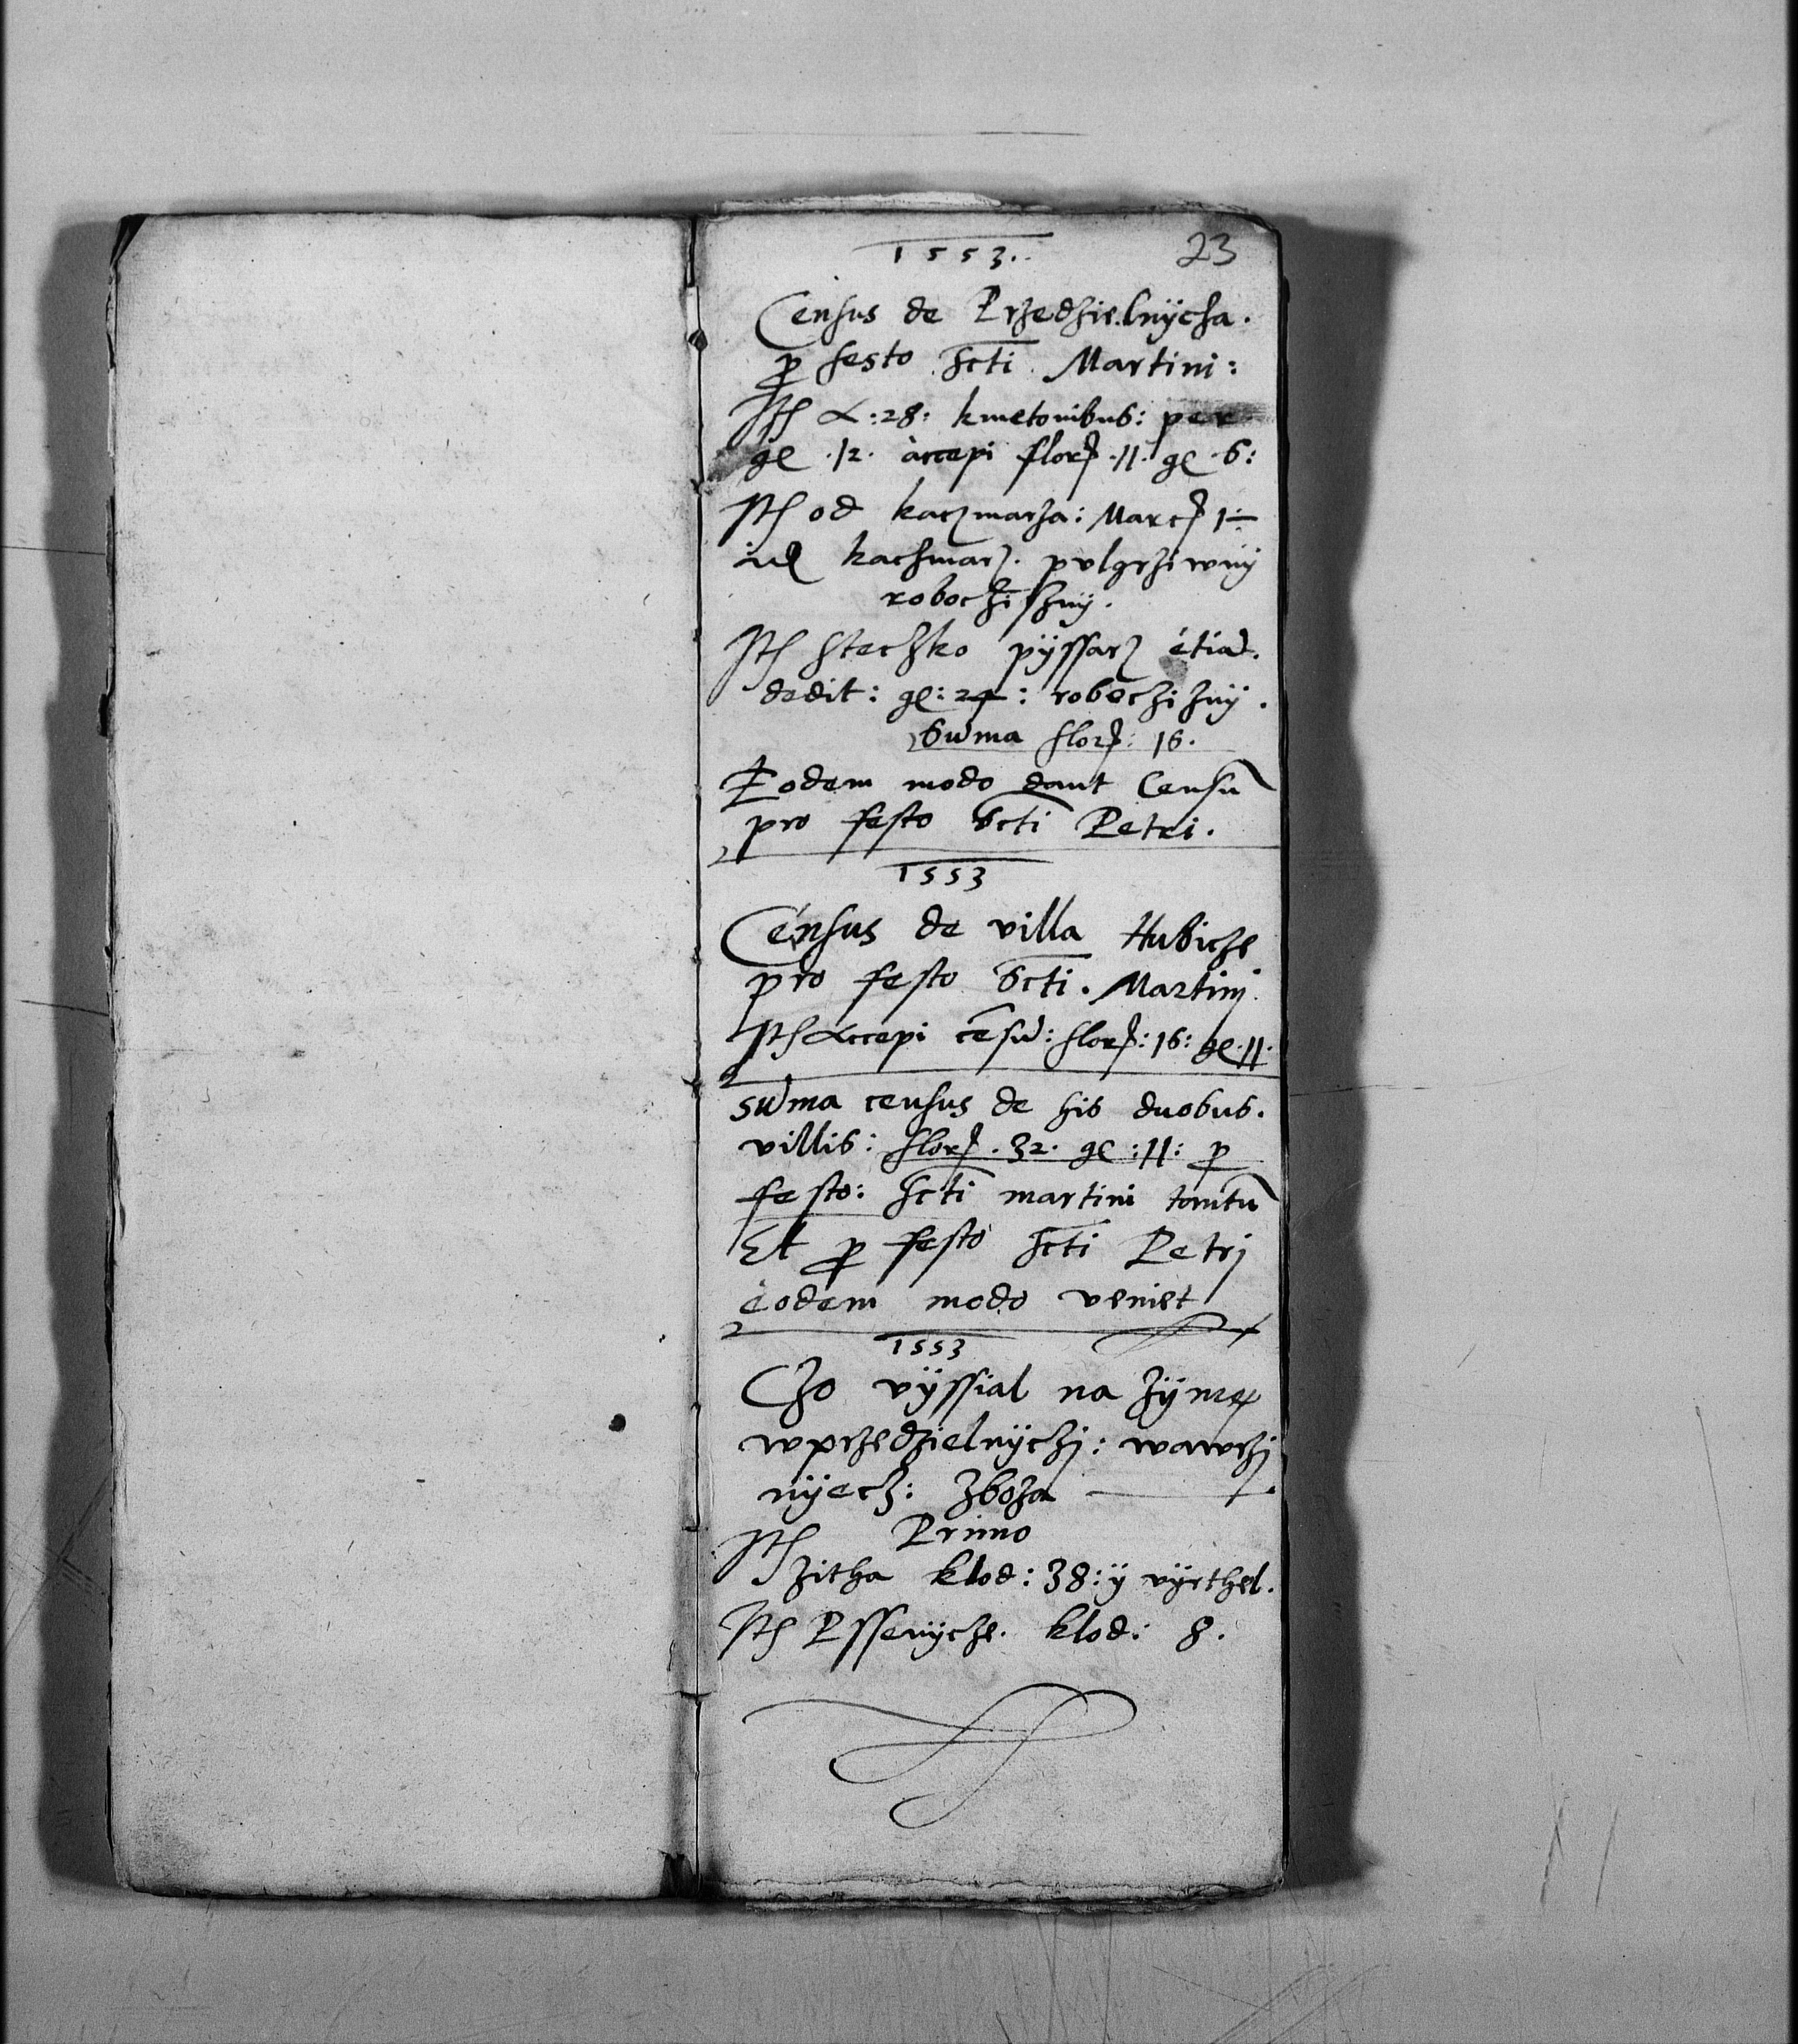 23
1553.
Census de Przedzielnÿcza.
p festo scti Martini:
Ith a :28: kmetonibus: per
gl .12. accepi flor .11. gl .6:
Ith od kaczmarza: Marc 1
kaczmarz. pulgrziwnÿ
roboczisznÿ.
Ith Steczko pÿssarz etiã.
dedit: gl: 24: robeczisznÿ.
Sũma flor: 16.
Eodem modo dant Censũ
pro festo Scti Petri.
1553
Census de villa Hubicze
pro festo Scti. Martinj
Ith Accepi cẽsũ: flor: 16: gl .11.
sũma census de his duobus.
villis: flor .32. gl :11: p
festo: scti martini tantũ
Et p festo scti Petrj
eodem modo veniet
1553
Czo vÿssial na zÿmę
wprzedzielnÿczj: wawrzi
nÿecz: Zboza
Ith Primo
zitha klod: 38: ÿ vÿrthel.
Ith Pssenÿcze. klod: 8.